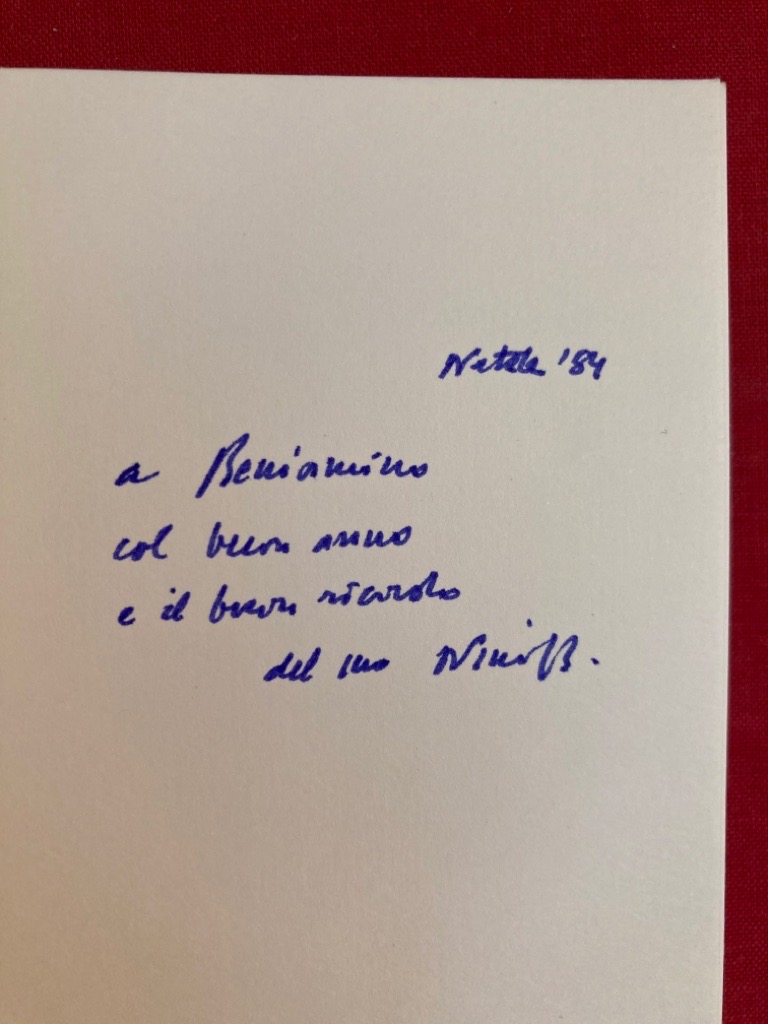 Natale '84
a Beniamino
col buon anno
e il buon ricordo
del suo Nino B.